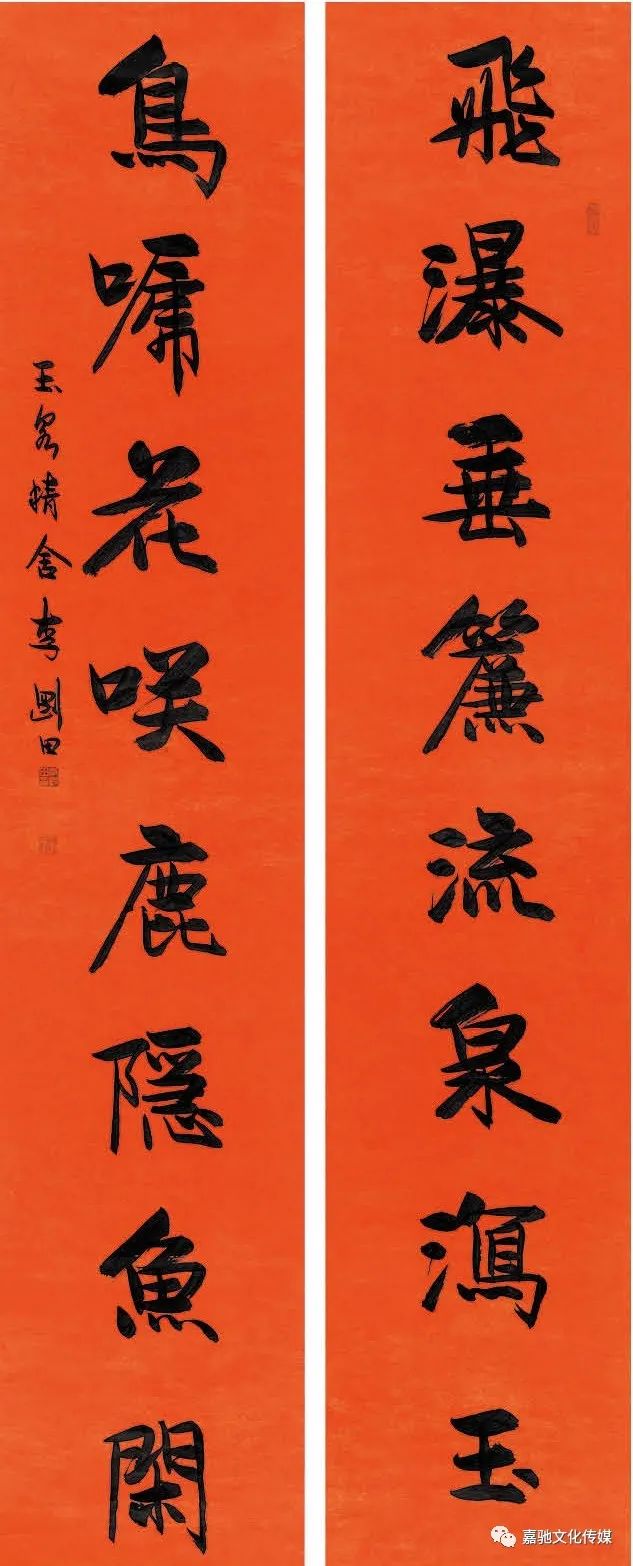 飛瀑垂簾流泉瀉玉
鳥囀花咲鹿隱魚閑
玉泉精舍李剛田
嘉驰文化传媒